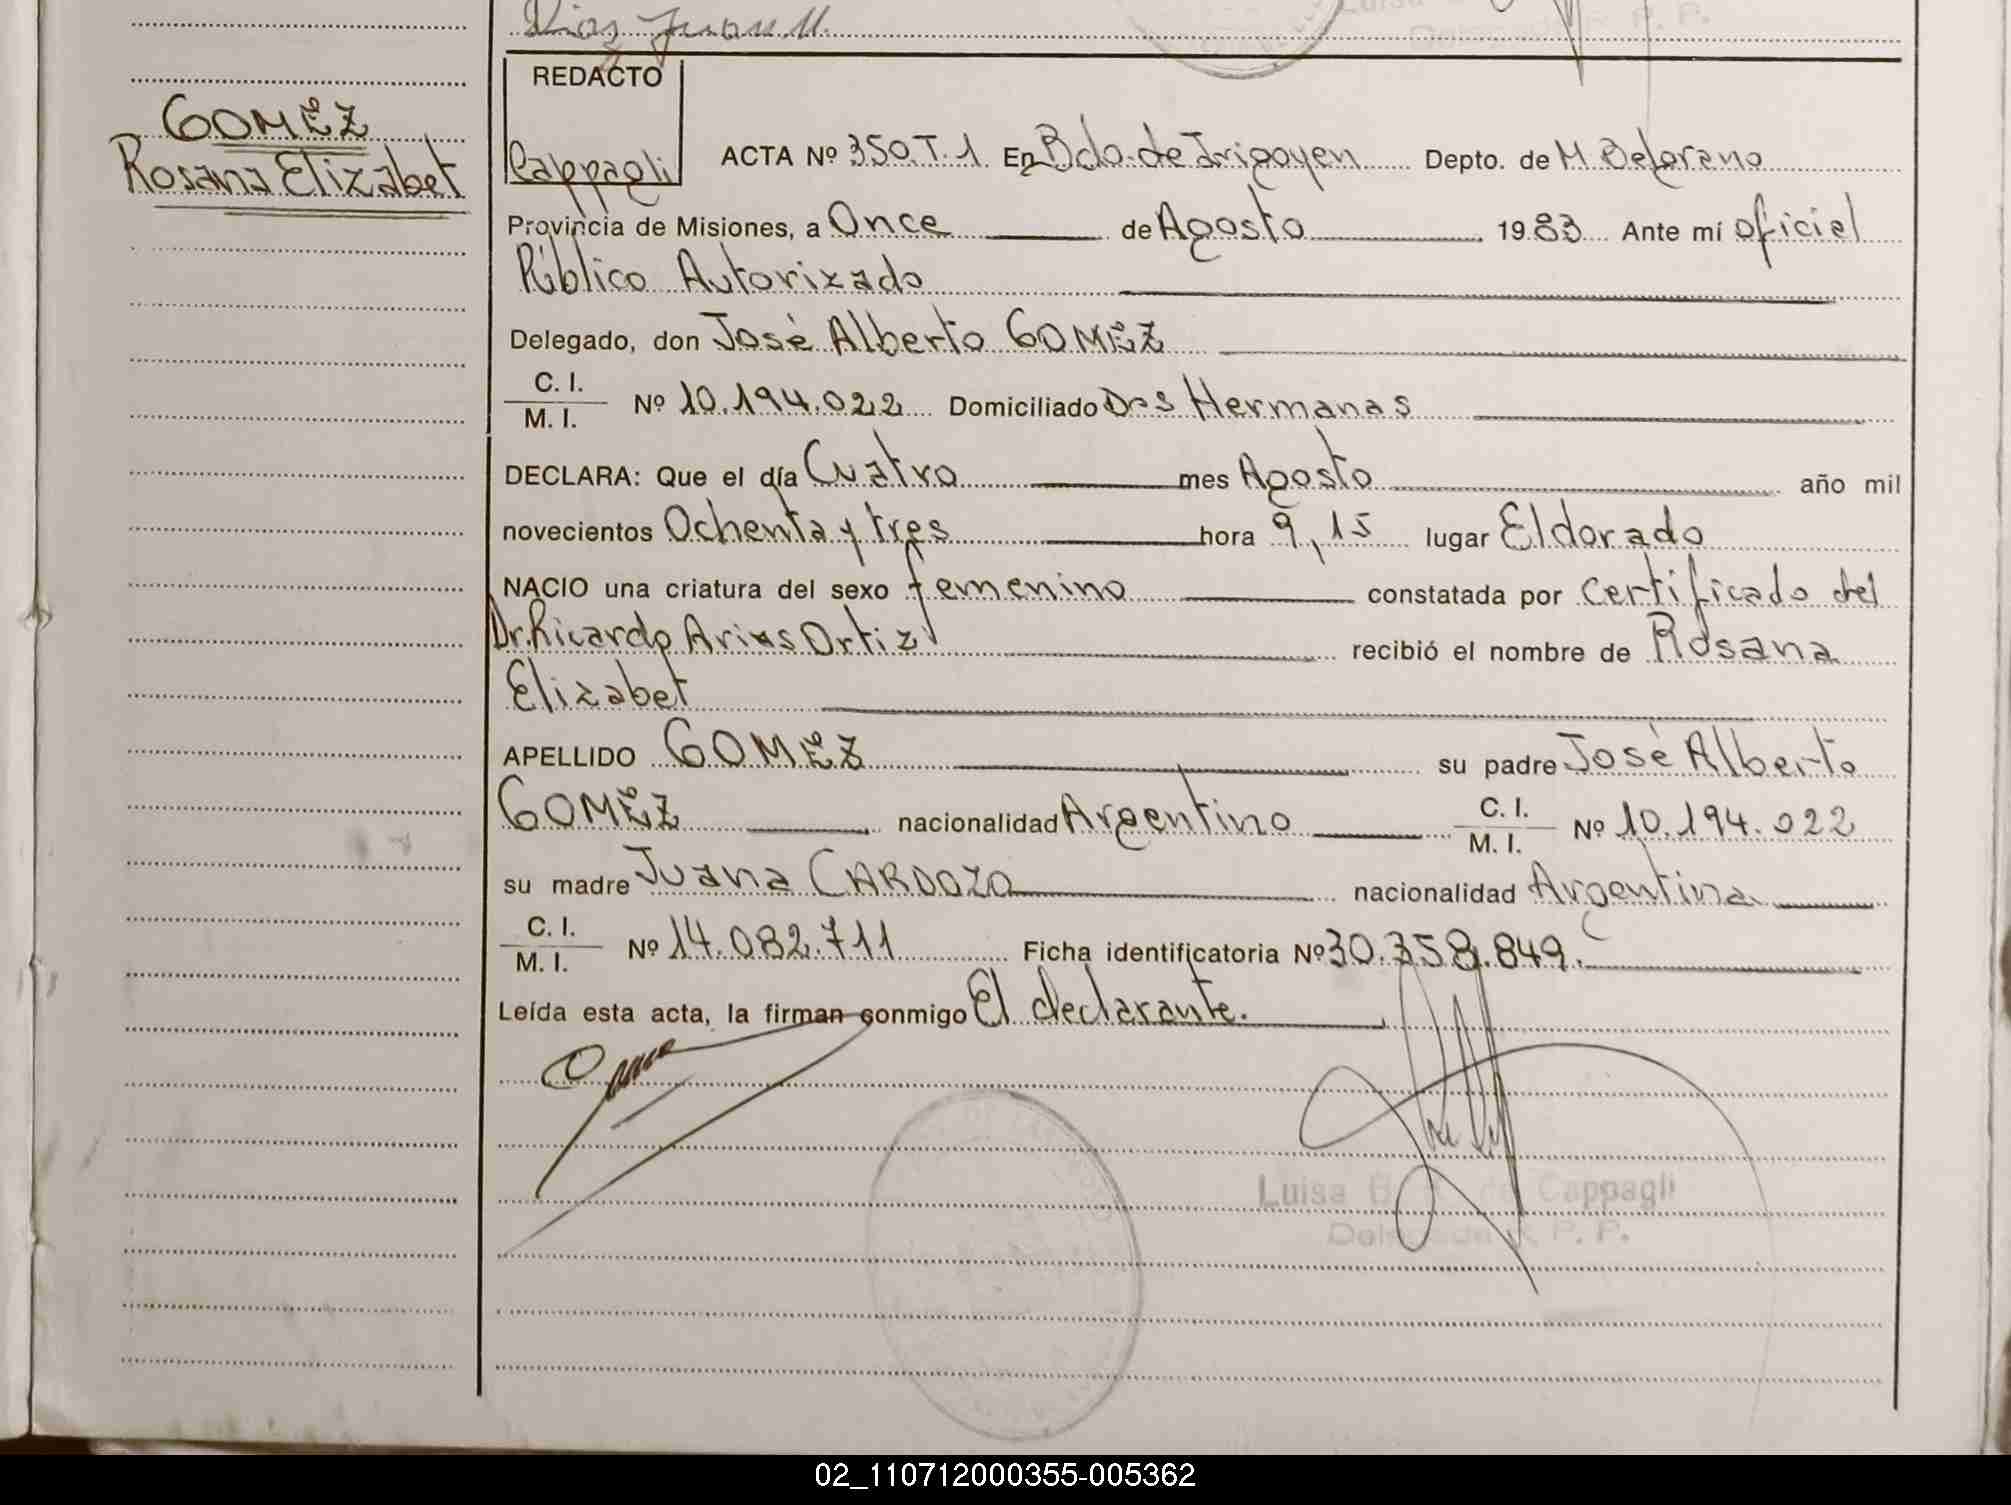 Diaz Juan M.
REDACTO
Cappagli
GOMEZ
Rosana Elizabet
ACTA Nº 350.T.1. En Bdo. de Irigoyen Depto. de M. Belgrano
Provincia de Misiones, a Once de Agosto 1983 Ante mí oficial
Público Autorizado
Delegado, don José Alberto GOMEZ
C. I.
M. I. Nº 10.194.022 Domiciliado Dos Hermanas
DECLARA: Que el día Cuatro mes Agosto año mil
novecientos Ochenta y tres hora 9,15 lugar Eldorado
NACIO una criatura del sexo femenino constatada por certificado del
Dr. Ricardo Arias Ortiz recibió el nombre de Rosana
Elizabet
APELLIDO GOMEZ su padre José Alberto
GOMEZ nacionalidad Argentino C. I.
M. I. Nº 10.194.022
su madre Juana CARDOZO nacionalidad Argentina
C. I.
M. I. Nº 14.082.711 Ficha identificatoria Nº 30.358.849.
Leída esta acta, la firman conmigo El declarante.
Luisa de Cappagli
Delegada R. P. P.
02_110712000355-005362